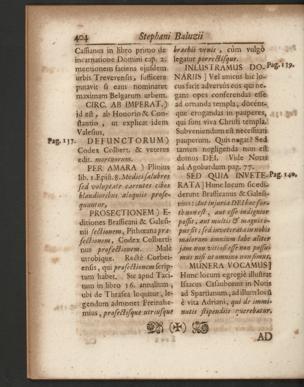 404
Stephani Baluzii
Cassianus in libro primo de
incarnatione Domini cap. 2.
mentionem faciens ejusdem
urbis Treverensis, sufficere
putavit si eam nominaret
maximam Belgarum urbem.
CIRC. AB IMPERAT.)
id est, ab Honorio & Con-
stantio, ut explicat idem
Valesius.
Pag. 137.
DEFUNCTORUM)
Codex Colbert. & veteres
edit. mortuorum.
PER AMARA) Plinius
lib. 1. Epist. 8. Medici salubres
sed voluptate carentes cibos
blandioribus alloquiis prose-
quuntur,
PROSECTIONEM) E-
ditiones Brassicani & Galesi-
nii sectionem, Pithœana præ-
sectionem, Codex Colbertin
nus profectionem. Male
utrobique. Recte Corbei-
ensis, qui prosectionem scrip-
tum habet. Sic apud Taci-
tum in libro 16. annalium,
ubi de Thrasea loquitur, le-
gendum admonet Freinshe-
mius, prosectisque utriusque
brachii venis, cum vulgò
legatur porrectisque.
Pag. 139.
INLUSTRAMUS DO-
NARIIS] Vel unicus hic lo-
cus facit adversùs eos qui ne-
gant opes conferendas esse
ad ornanda templa; docént-
que erogandas in pauperes,
qui sunt viva Christi templa.
Subveniendum est necessitati
pauperum. Quis negat? Sed
tamen negligenda non est
domus DEI. Vide Notas
ad Agobardum pag. 77.
Pag. 140.
SED QUIA INVETE-
RATA] Hunc locum sic edi-
derunt Brassicanus & Galesi-
nius:
MUNERA VOCAMUS]
Hunc locum egregiè illustrat
Isaacus Casaubonus in Notis
ad Spartianum, ad illum locū
è vita Adriani, qui de immi-
nutis stipendiis querebatur.
AD